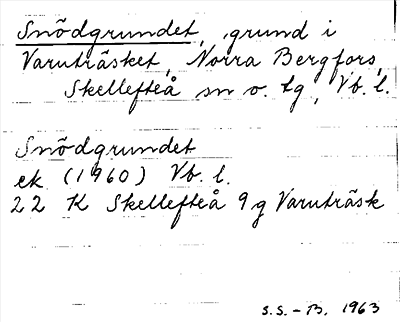 Snödgrundet, grund i
Varuträsket, Norra Bergfors,
Skellefteå sn o. tg, Vb. l.
Snödgrundet
ek (1960) Vb. l.
22 K Skellefteå 9g Varuträsk
S.S. - B. 1963